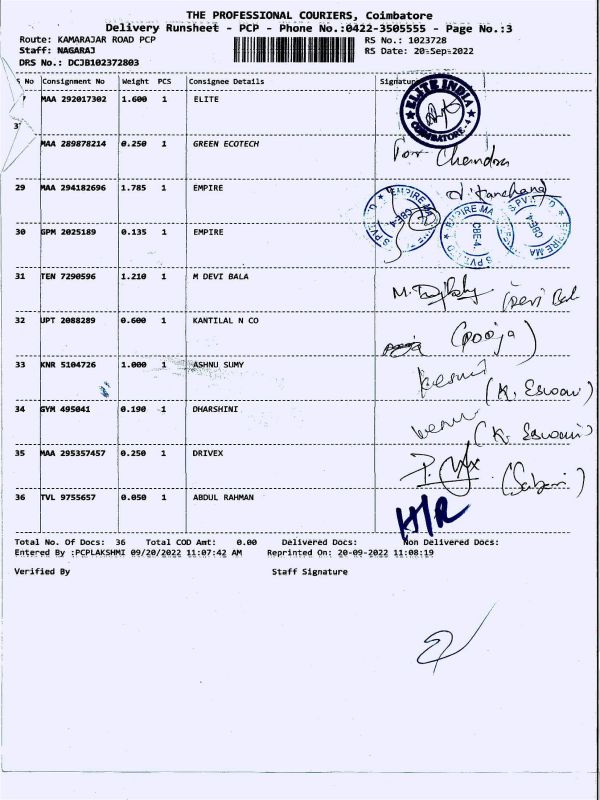 THE PROFESSIONAL COURIERS, Coimbatore
Delivery Runsheet - PCP - Phone No.:0422-3505555 - Page No.:3
Route: KAMARAJAR ROAD PCP RS No.: 1023728
Staff: NAGARAJ RS Date: 20-Sep-2022
DRS No.: DCJB102372803
S No Consignment No Weight PCS Consignee Details Signature
MAA 292017302 1.600 1 ELITE
ELITE INDIA COIMBATORE-4
MAA 289878214 0.250 1 GREEN ECOTECH
For Chandra
29 MAA 294182696 1.785 1 EMPIRE
30 GPM 2025189 0.135 1 EMPIRE
EMPIRE MA CBE-4 S PVT LTD
EMPIRE MA CBE-4 S PVT LTD
EMPIRE MA CBE-4 S PVT LTD
31 TEN 7290596 1.210 1 M DEVI BALA
M. (Devi Bala
32 UPT 2088289 0.600 1 KANTILAL N CO
(pooja)
33 KNR 5104726 1.000 1 ASHNU SUMY
(K. Eswari)
34 GYM 495041 0.190 1 DHARSHINI
(K. Eswari)
35 MAA 295357457 0.250 1 DRIVEX
(Sabari)
36 TVL 9755657 0.050 1 ABDUL RAHMAN
H/R
Total No. Of Docs: 36 Total COD Amt: 0.00 Delivered Docs: Non Delivered Docs:
Entered By :PCPLAKSHMI 09/20/2022 11:07:42 AM Reprinted On: 20-09-2022 11:08:19
Verified By Staff Signature